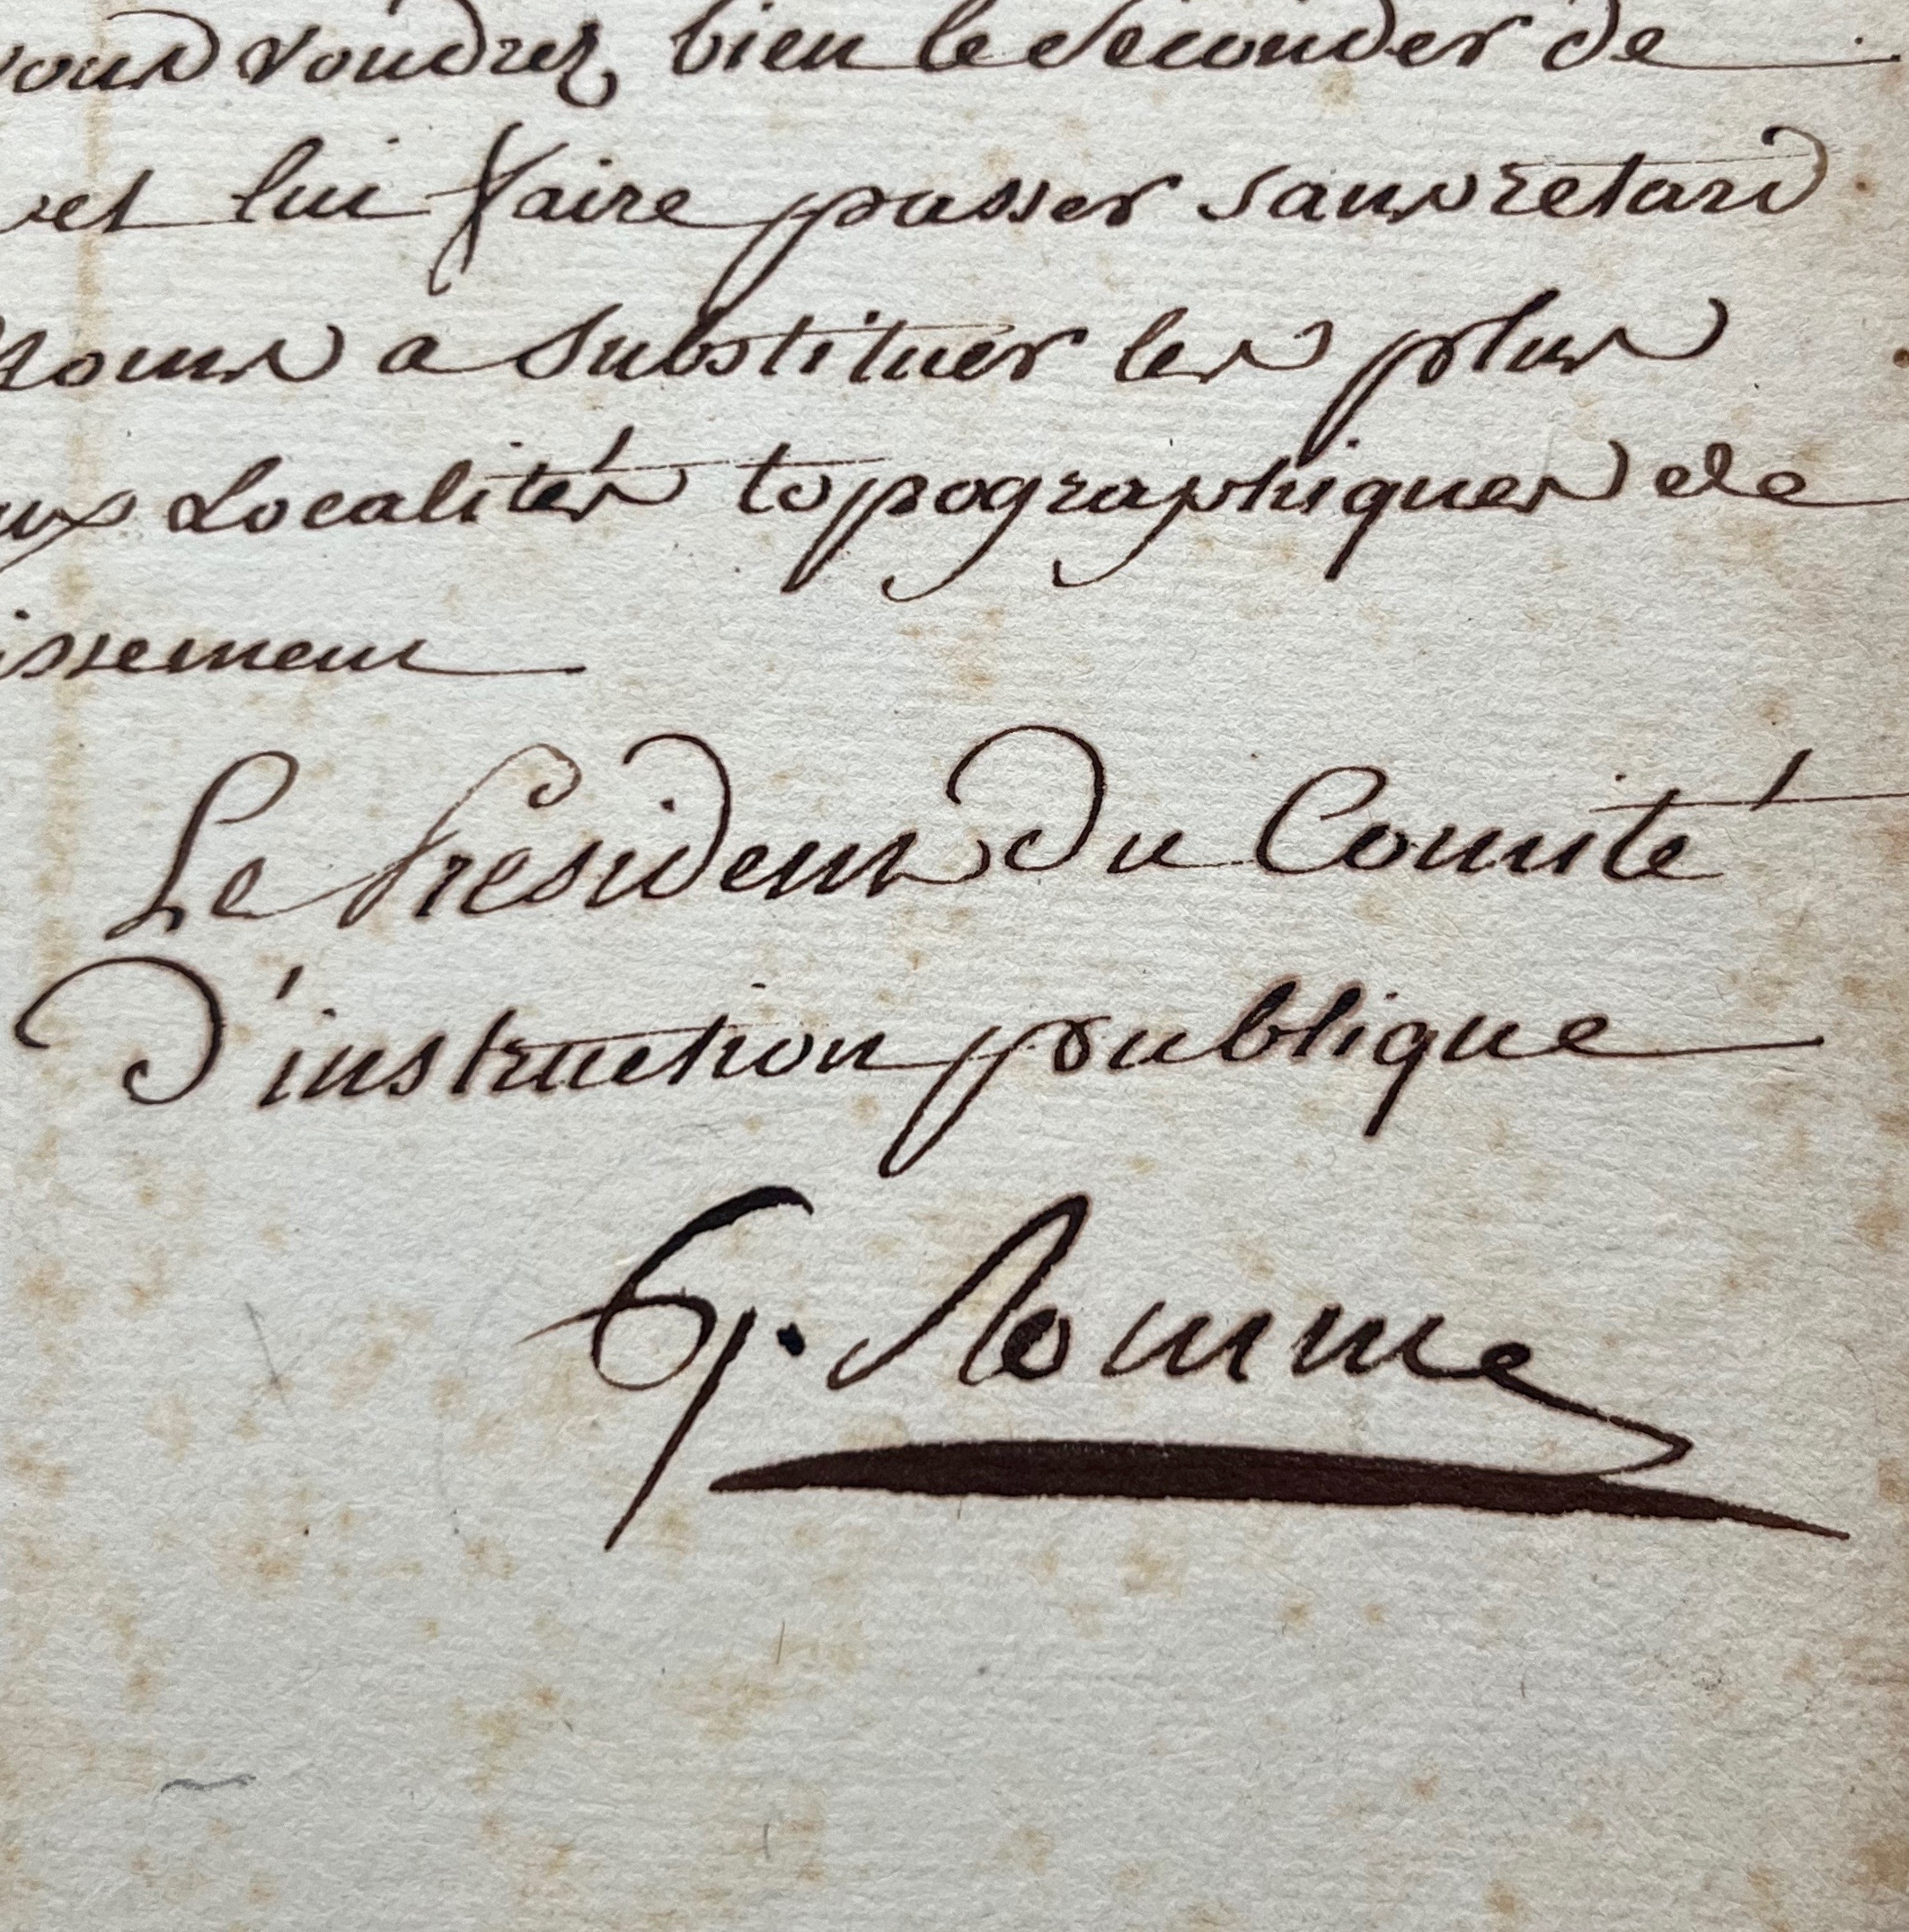 vous voudrez bien le seconder de
et lui faire passer sans retard
noms a substituer les plus
aux Localités topographiques de
issement
Le Président Du Comité
D'instruction publique
G. Romme